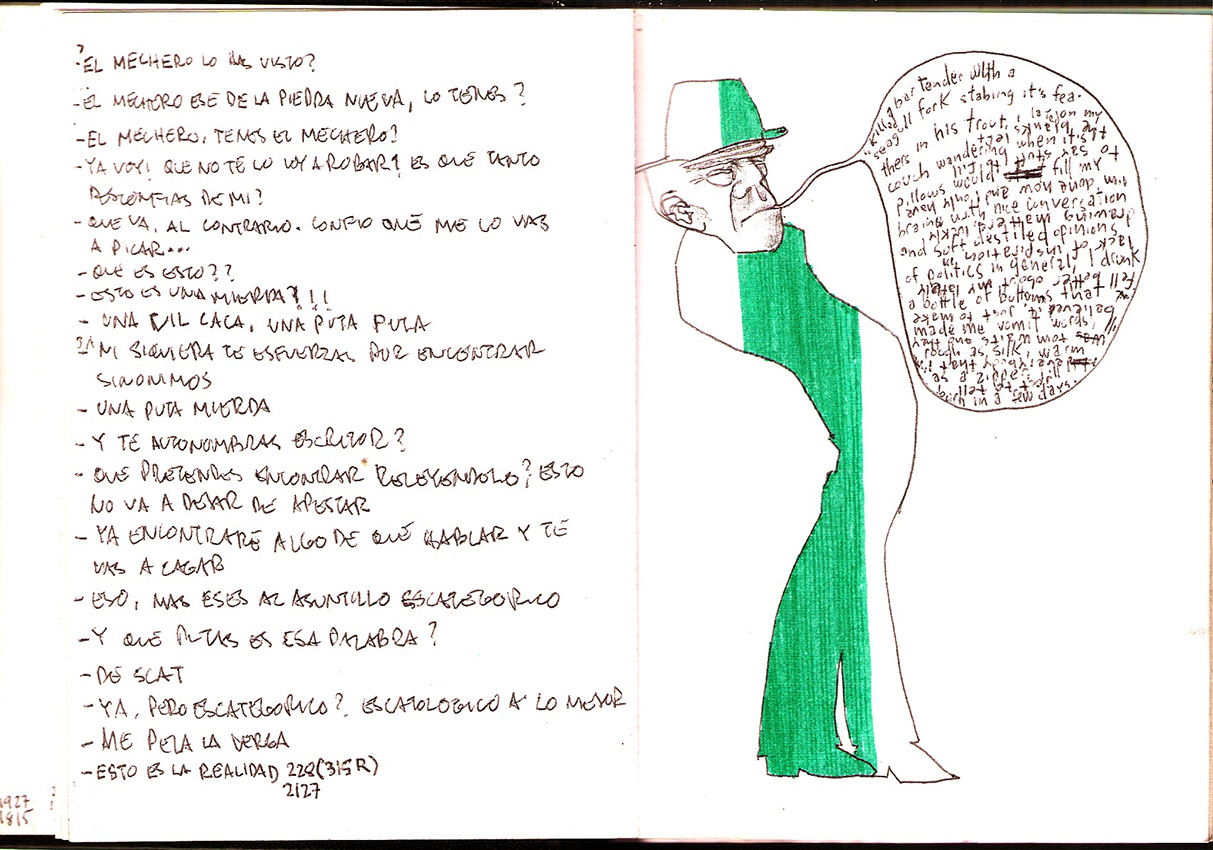 -¿EL MECHERO LO HAS VISTO?
-EL MECHERO ESE DE LA PIEDRA NUEVA, LO TENES?
-EL MECHERO, TENES EL MECHERO?
-YA VOY! QUE NO TE LO VOY A ROBAR! ES QUE TANTO
DESCONFIAS DE MI?
-QUE VA, AL CONTRARIO. CONFIO QUE ME LO VAS
A PICAR...
-QUE ES ESTO??
-ESTO ES UNA MIERDA?!!
- UNA VIL CACA, UNA PUTA PUTA
NI SIQUIERA TE ESFUERZAS POR ENCONTRAR
SINONIMOS
- UNA PUTA MIERDA
- Y TE AUTONOMBRAS ESCRITOR?
- QUE PRETENDES ENCONTRAR RELEYENDOLO? ESTO
NO VA A DEJAR DE APESTAR
- YA ENCONTRARE ALGO DE QUÉ HABLAR Y TE
VAS A CAGAR
- ESO, MAS ESES AL ASUNTILLO ESCATEGORICO
-Y QUE PUTAS ES ESA PALABRA?
-DE SCAT
-YA, PERO ESCATEGORICO? ESCATOLOGICO A LO MEJOR
- ME PELA LA VERGA
-ESTO ES LA REALIDAD 228(315R)
2127
1927
1815
"killed bartender with a
seagull fork stabing it's fea-
thers in his trout, i lay on my
couch wandering
when it's
to say
pillows would fill my
brains with nice conversation
and soft distiled opinions
of politics in general, I drunk
a bottle of buttons
fell better about my
believed it, just to make
made me vomit
tom waits and they
rough as silk, warm
as a
in a few days.